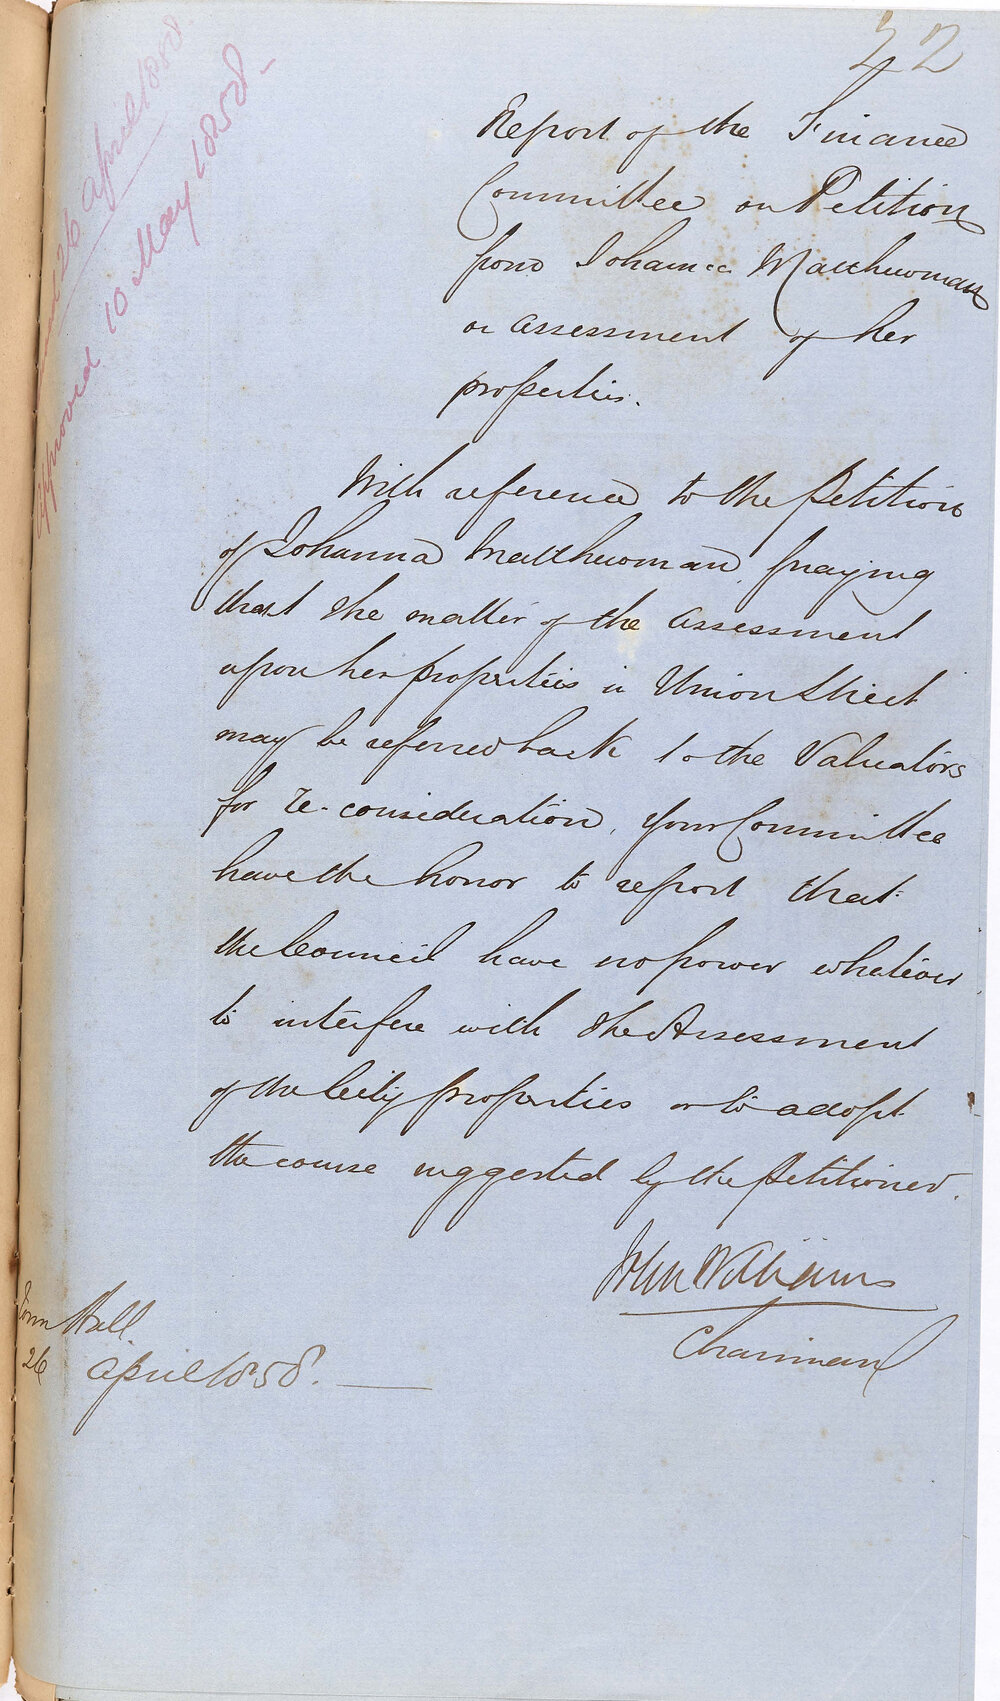 22
26 April 1858
Approved 10 May 1858
Report of the Finance
Committee on Petition
from Johanna Matthewman
on assessment of her
properties.
With reference to the Petition
of Johanna Matthewman, praying
that the matter of the assessment
upon her properties in Union Street
may be referred back to the Valuators
for re-consideration, your Committee
have the honor to report that
the Council have no power whatever
to interfere with the Assessment
of the City properties or to adopt
the course suggested by the Petitioner.
John Williams
Chairman
Town Hall.
26 April 1858.